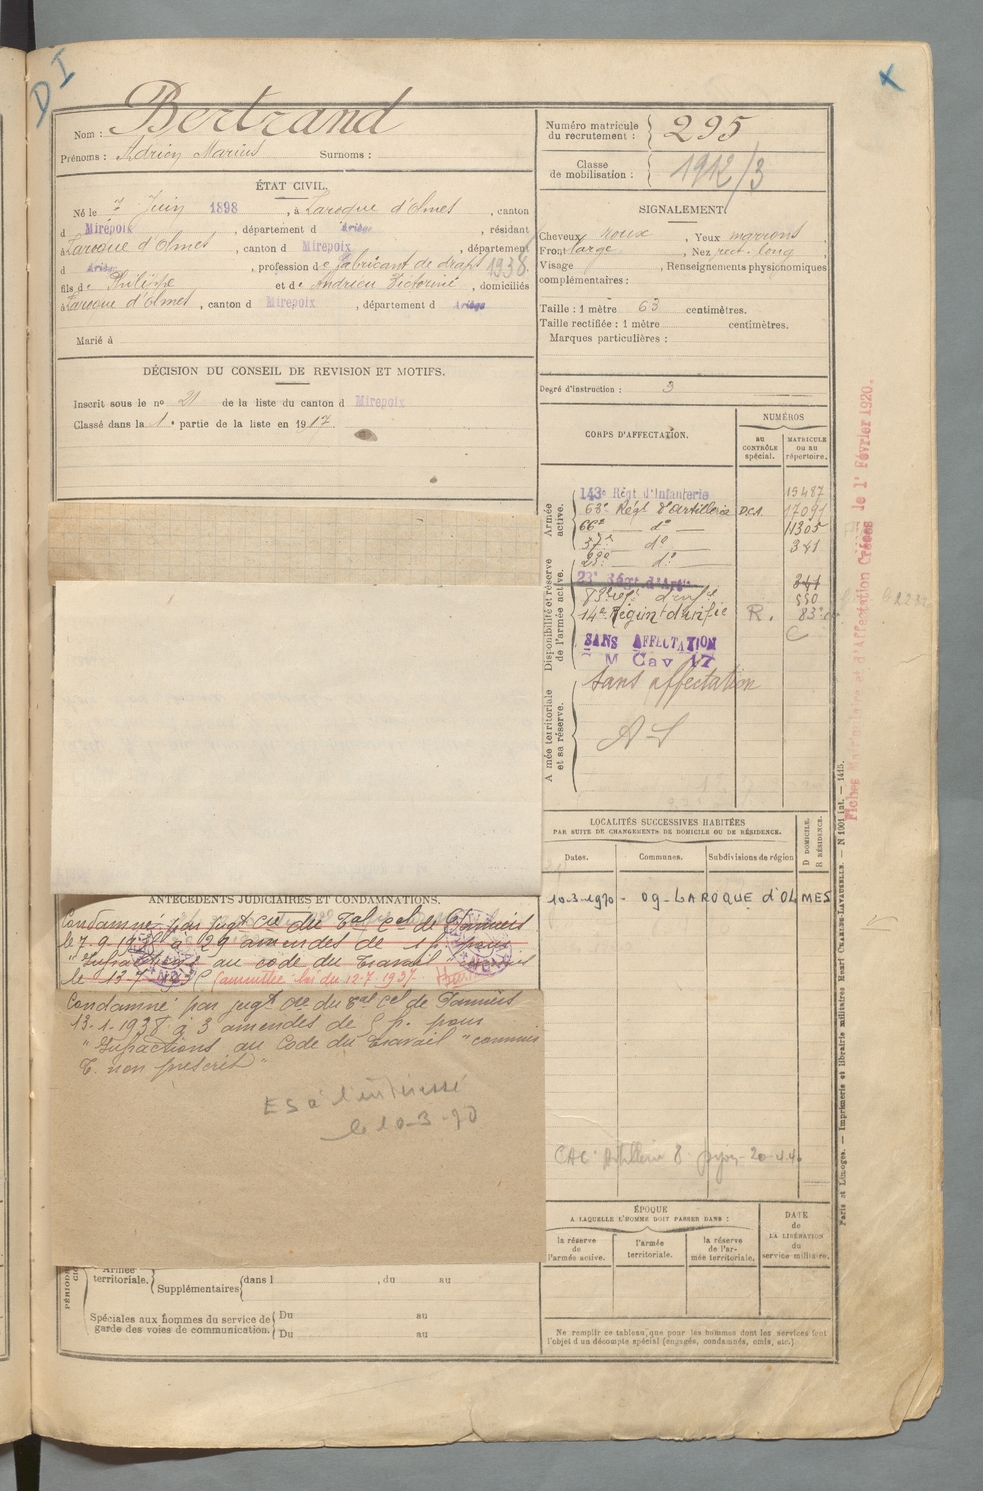 D I
Nom : Bertrand
Prénoms : Adrien Marius Surnoms :
Numéro matricule du recrutement : 295
Classe de mobilisation : 1912/3
ÉTAT CIVIL.
Né le 7 Juin 1898, à Laroque d'Olmes, canton
d Mirepoix, département d Ariège, résidant
à Laroque d'Olmes, canton d Mirepoix, département
d Ariège, profession de fabricant de draps 1938.
fils de Philippe et de Andrieu Victorine, domiciliés
à Laroque d'Olmes, canton d Mirepoix, département d Ariège
Marié à
SIGNALEMENT
Cheveux roux, Yeux marrons,
Front large, Nez rect. long
Visage , Renseignements physionomiques
complémentaires :
Taille : 1 mètre 63 centimètres.
Taille rectifiée : 1 mètre centimètres.
Marques particulières :
Degré d'instruction : 3
DÉCISION DU CONSEIL DE REVISION ET MOTIFS.
Inscrit sous le no 21 de la liste du canton d Mirepoix
Classé dans la 1e partie de la liste en 1917.
CORPS D'AFFECTATION.
NUMÉROS
AU CONTRÔLE spécial.
MATRICULE OU AU répertoire.
Armée active.
143e Régt d'Infanterie 15487
63e Régt d'Artillerie D.C.A. 17091
66e do 11305
37e do 341
23e do
Disponibilité et réserve de l'armée active.
23e Régt d'Artie 341
550
14e R.
SANS AFFECTATION
M Cav 17
Armée territoriale et sa réserve.
sans affectation
LOCALITÉS SUCCESSIVES HABITÉES
PAR SUITE DE CHANGEMENTS DE DOMICILE OU DE RÉSIDENCE.
Dates.
Communes.
Subdivisions de région
D DOMICILE.
R RÉSIDENCE.
10.3.1970 - 09 - LAROQUE d'OLMES
ANTÉCÉDENTS JUDICIAIRES ET CONDAMNATIONS.
Condamné par jugt du Bal Cel de Pamiers
le 7.9.193 à 29 amendes de 1 f. pour
"Infractions au code du Travail" commis
le 13-7-
(amnistiée loi du 12-7-1937.
Condamné par jugt du Bal Cel de Pamiers
13-1-1938 à 3 amendes de 5 f. pour
"Infractions au Code du Travail" commis
T. non prescrit"
ES à l'intéressé
le 10-3-70
CAC Artillerie 8 Dijon - 20.4.40
ÉPOQUE
A LAQUELLE L'HOMME DOIT PASSER DANS :
la réserve de l'armée active.
l'armée territoriale.
la réserve de l'armée territoriale.
DATE de LA LIBÉRATION du service militaire.
Armée territoriale. Supplémentaires dans l , du au
Spéciales aux hommes du service de garde des voies de communication. Du au
Du au
Ne remplir ce tableau que pour les hommes dont les services font
l'objet d'un décompte spécial (engagés, condamnés, omis, etc.)
Fiches Matricule et d'Affectation Créées le 1er Février 1920.
Paris et Limoges. — Imprimerie et librairie militaires Henri CHARLES-LAVAUZELLE. — N 1001 int. — 1415.